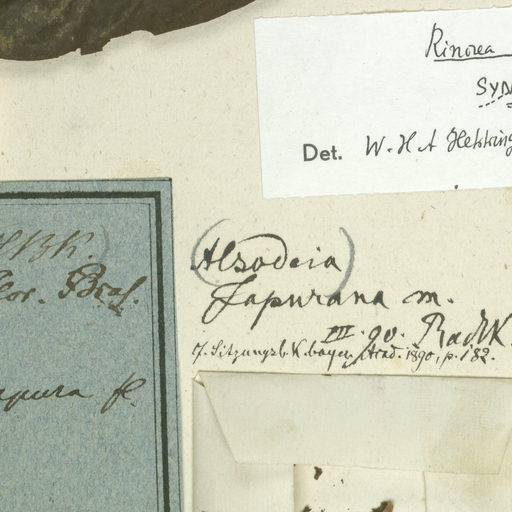 Rinorea
SYN
Det. W. H. A. Hekking
H.B.K.
Flor. Bras.
apura fl.
(Alsodeia)
Japurana m.
Radlk.
cf. Sitzungsb. K. bayer. Acad. 1890, p. 182.